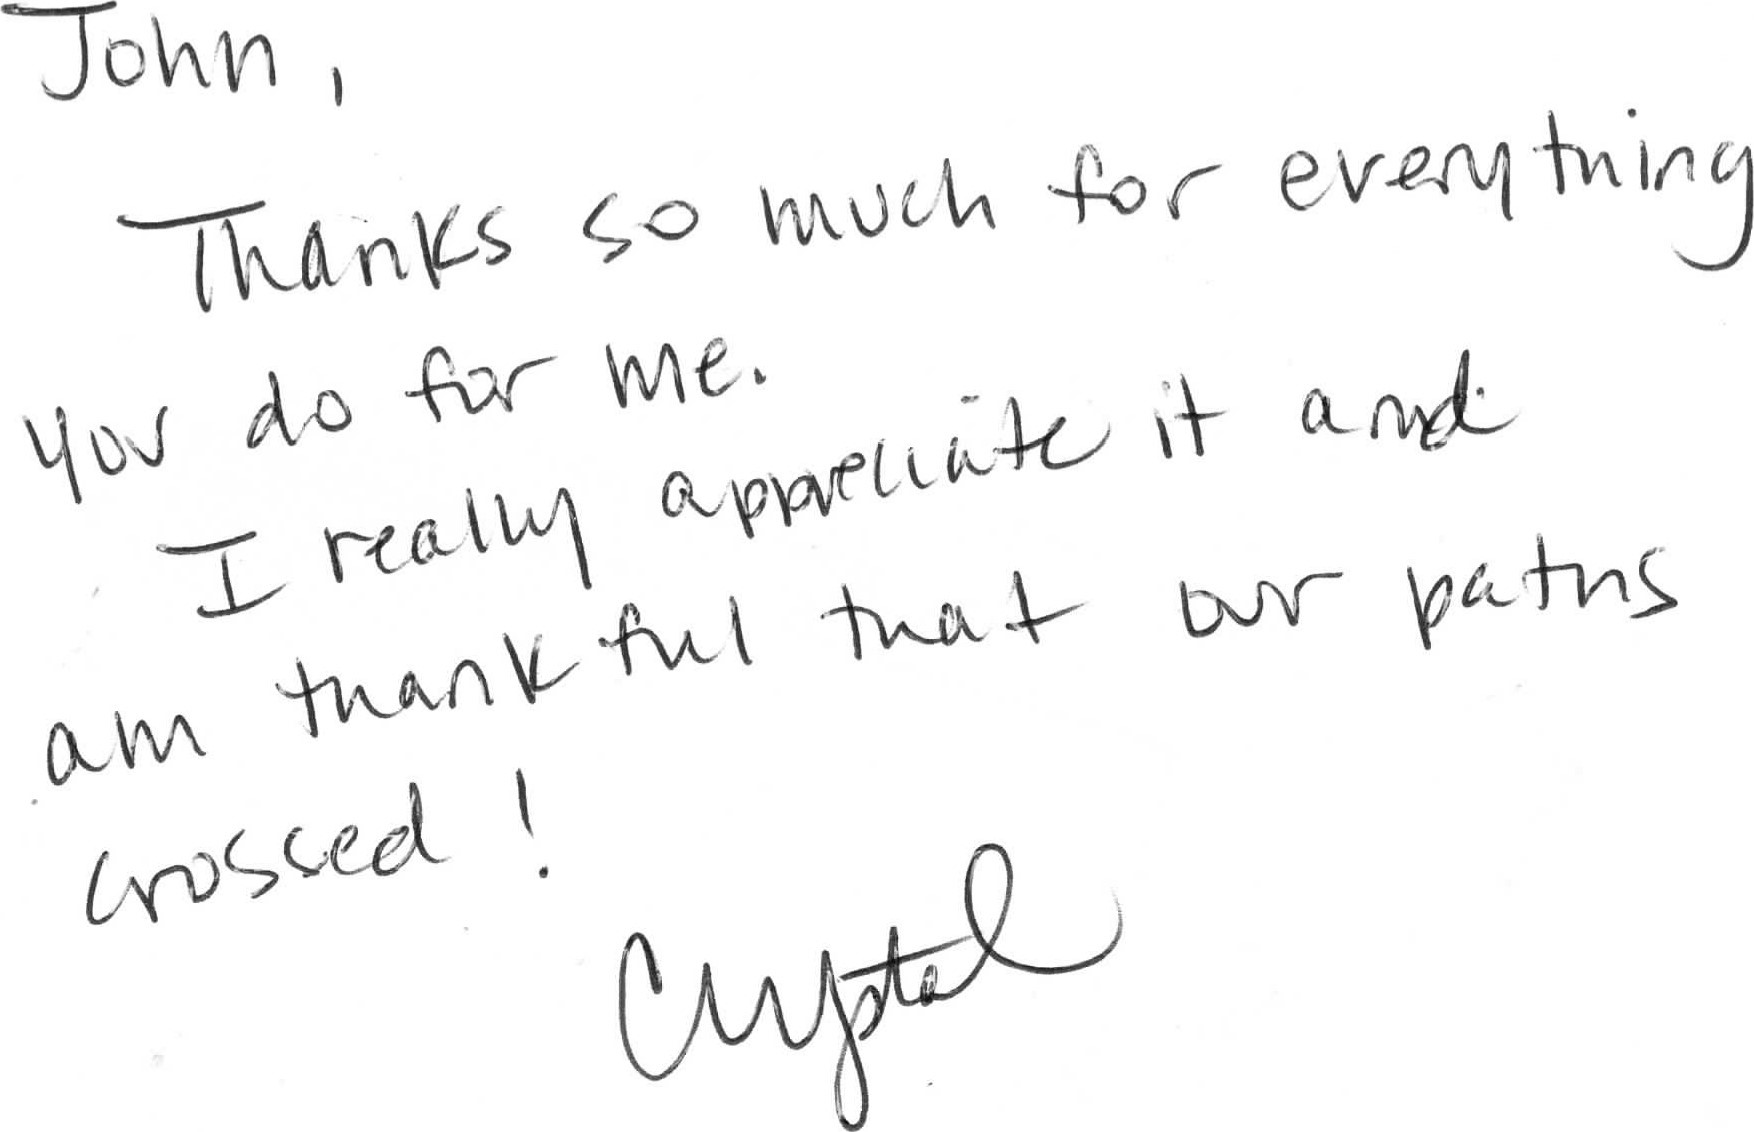 John,
Thanks so much for everything
you do for me.
I really appreciate it and
am thankful that our paths
crossed!
Crystal